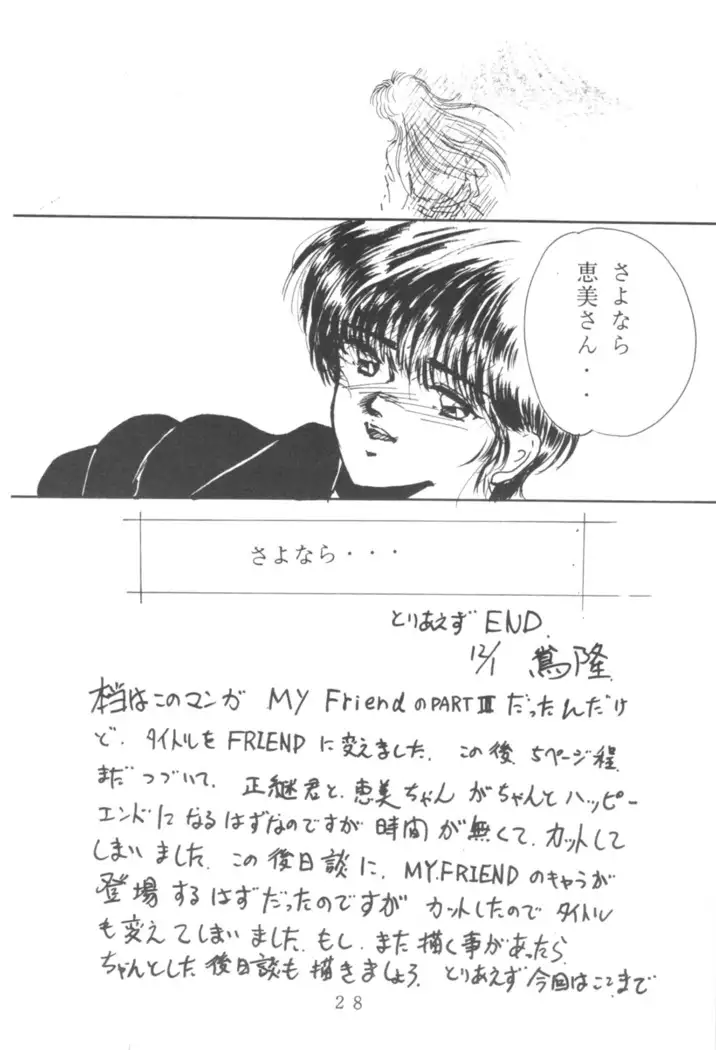 さよなら
恵美さん・・
さよなら・・・
とりあえず END.
12/1 鳶隆
本当はこのマンガ MY FriendのPART Ⅲ だったんだけ
ど、タイトルを FRIEND に変えました。この後 5ページ程、
まだ つづいて、正継君と、恵美ちゃん がちゃんと ハッピー
エンドに なる はずなのですが 時間 が 無くて、カットして
しまいました。この 後日談 に、MY.FRIEND のキャラが
登場 する はずだったのですが カットしたので タイトル
も 変えて しまいました。もし、また 描く 事があったら、
ちゃんとした 後日談も 描きましょう。とりあえず 今回は ここまで
28